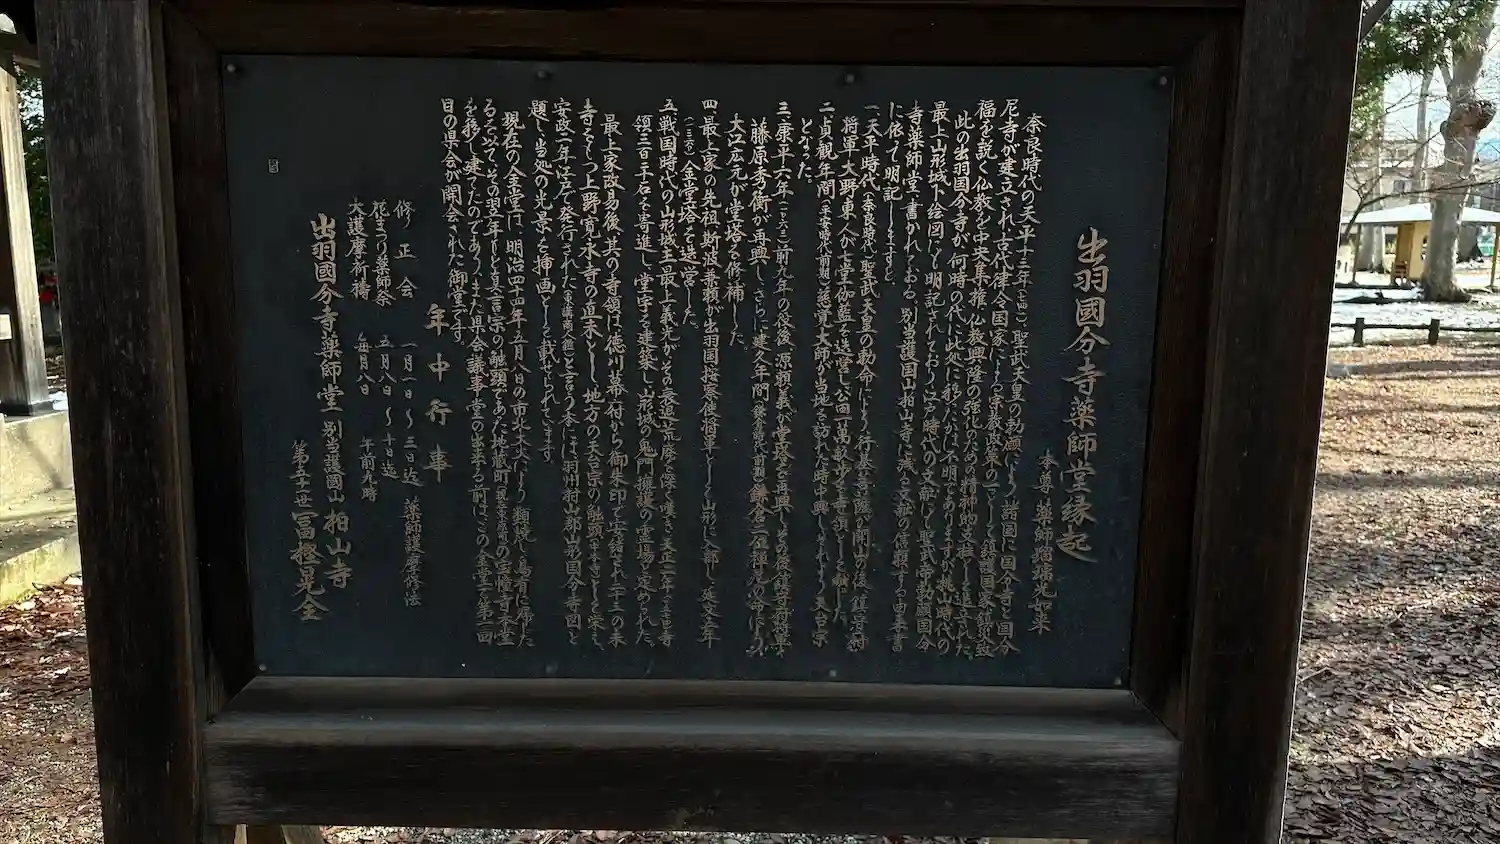 出羽國分寺薬師堂縁起
本尊 薬師瑠璃光如来
奈良時代の天平十三年(七四一)聖武天皇の勅願により諸国に国分寺・国分
尼寺が建立され、古代律令国家による宗教政策の一つとして鎮護国家、鎮災致
福を説く仏教を中央集権、仏教興隆の強化のための精神的支柱として造された。
此の出羽国分寺が何時の代に此処に移ったかは不明でありますが、桃山時代の
最上山形城下絵図にも明記されており、江戸時代の文献にも聖武帝勅願国分
寺薬師堂と書かれておる、別当護国山柏山寺に残る文献の信頼する由来書
に依って明記しますと、
一天平時代(奈良時代)聖武天皇の勅命により行基菩薩が開山の後、鎮守府
将軍大野東人が七堂伽藍を造営し公田一萬数歩を寺領とし献した。
二貞観年間(平安時代前期)慈覚大師が当地を訪れた時中興しこれより天台宗
となった。
三康平六年(一〇六三)前九年の役後、源頼義が堂塔を再興しその後鎮守府将軍
藤原秀衡が再興し、さらに建久年間(鎌倉時代前期)鎌倉二位禅尼の命により
大江広元が堂塔を修補した。
四最上家の先祖斯波兼頼が出羽国按察使将軍として山形に入部し延文六年
(一三六一)金堂塔を造営した。
五戦国時代の山形城主最上義光がその衰退荒廃を深く嘆き
領三百三石を寄進し、堂宇を建築し、山形城の鬼門擁護の霊場と定められた。
最上家改易後、其の寺領は徳川幕府から御朱印で安緒され二十三の末
寺をもつ上野寛永寺の直末とし、地方の天台宗の触頭寺として栄え、
安政二年江戸で発行された(東講商人鑑)と言う本には羽州村山郡山形国分寺図と
題し、当処の光景を挿画として載せられています。
現在の金堂は、明治四十四年五月八日の市北大火により類焼し烏有に帰した
るを以て、その翌年もと真言宗の触頭であった地蔵町の宝幢寺本堂
を移し建てたのであり、また県会議事堂の出来る前は、この金堂で第一回
目の県会が開会された御堂です。
年中行事
修正会 一月一日〜三日迄 薬師護摩修法
花まつり薬師祭 五月八日〜十日迄
大護摩祈祷 毎月八日 午前九時
出羽國分寺薬師堂 別当護國山柏山寺
第五十一世 冨樫晃全